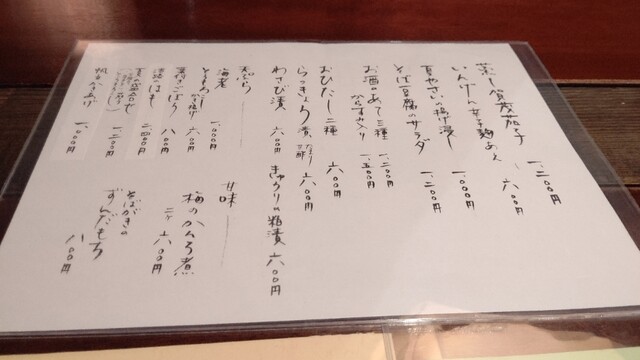 蒸し賀茂茄子 一、二〇〇円
いんげんの 六〇〇円
夏やさいの揚げ浸し 一、〇〇〇円
そば豆腐のサラダ 一、二〇〇円
お酒のあて三種 一、二〇〇円
からすみ入り 一、五〇〇円
おひたし二種 六〇〇円
らっきょう 六〇〇円
わさび漬 六〇〇円
きゅうりの粕漬 六〇〇円
天ぷら
海老 一、〇〇〇円
とうもろこしかき揚げ 六〇〇円
葉付きごぼう 八〇〇円
淡路のはも 二、四〇〇円
夏の盛合せ 一、二〇〇円
帆立かきあげ 一、〇〇〇円
甘味
梅のかんろ煮
二ヶ 六〇〇円
そばがきの
ずんだもち 八〇〇円